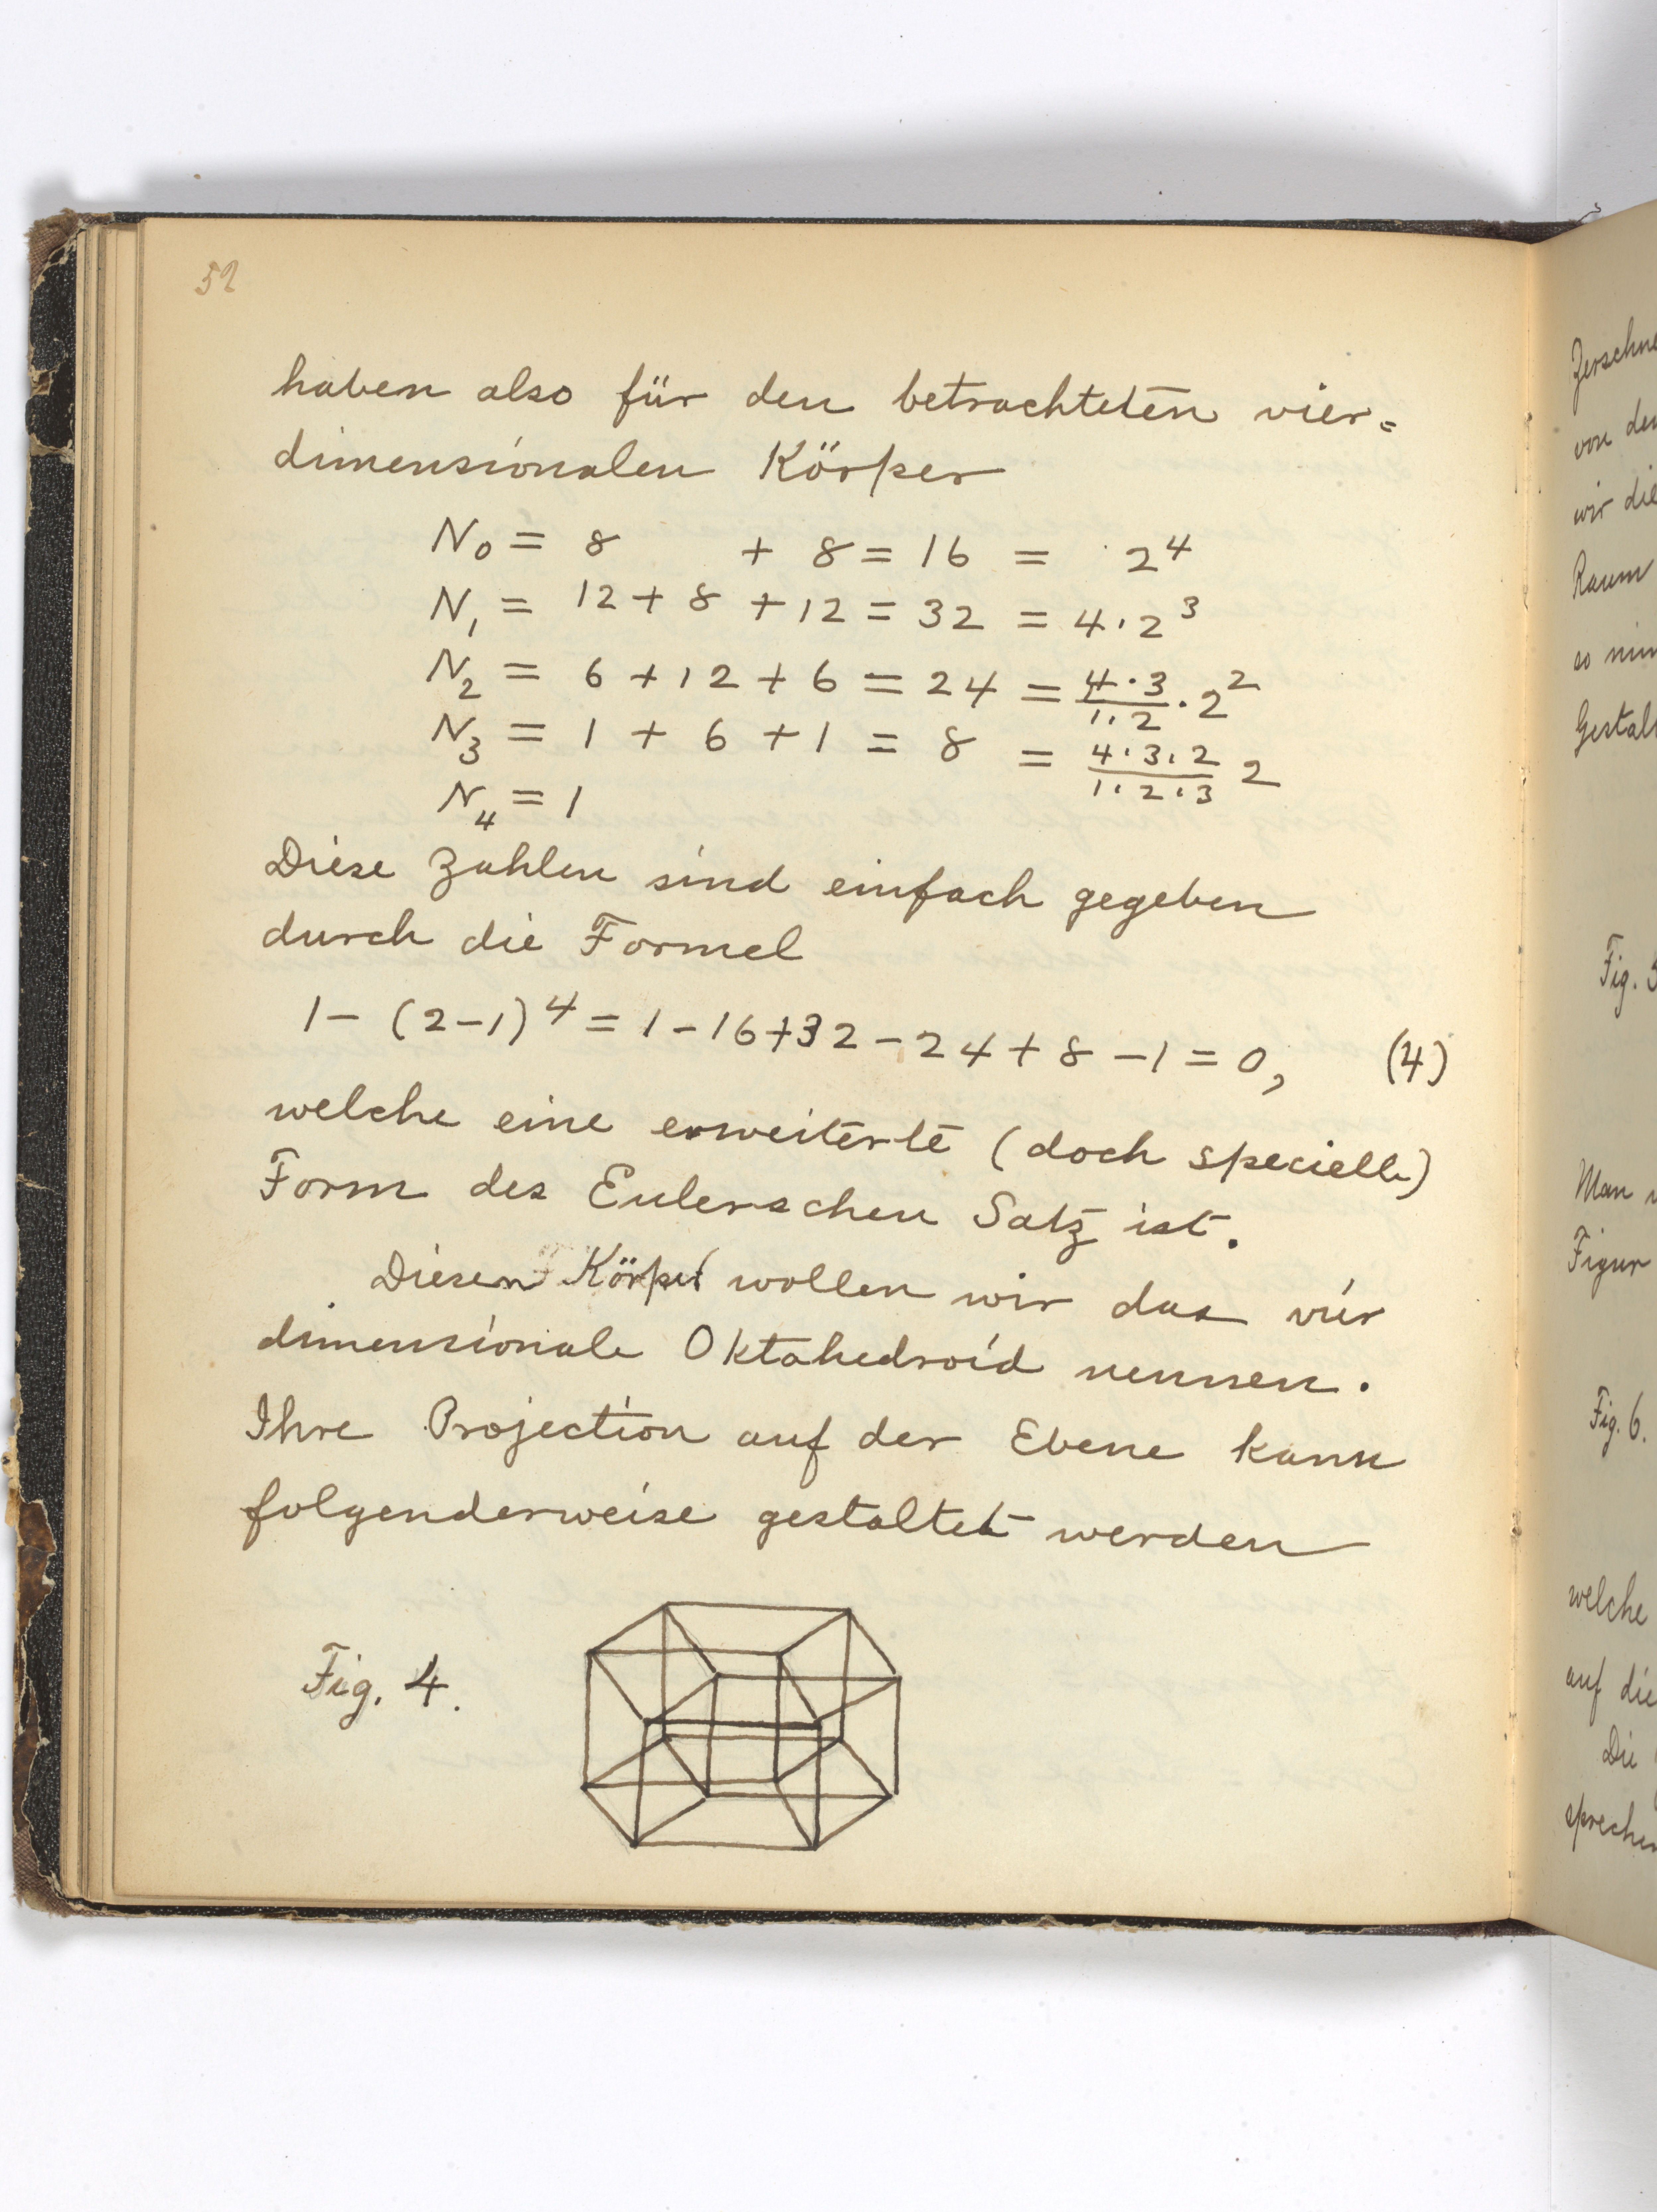 52
haben also für den betrachteten vier=
dimensionalen Körper
N₀ = 8 + 8 = 16 = 2⁴
N₁ = 12 + 8 + 12 = 32 = 4·2³
N₂ = 6 + 12 + 6 = 24 = 4·3/1·2 · 2²
N₃ = 1 + 6 + 1 = 8 = 4·3·2/1·2·3 2
N₄ = 1
Diese Zahlen sind einfach gegeben
durch die Formel
1 - (2-1)⁴ = 1 - 16 + 32 - 24 + 8 - 1 = 0, (4)
welche eine erweiterte (doch specielle)
Form des Eulerschen Satz ist.
Diesen Körper wollen wir das vier
dimensionale Oktahedroid nennen.
Ihre Projection auf der Ebene kann
folgenderweise gestaltet werden
Fig. 4.
von
wir die
Raum
Fig. 5
Man
Figur
Fig. 6.
welche
auf die
Die